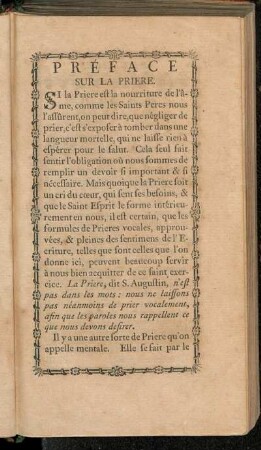 PRÉFACE
SUR LA PRIERE.
SI la Priere est la nourriture de l'â-
me, comme les Saints Peres nous
l'assûrent, on peut dire, que négliger de
prier, c'est s'exposer à tomber dans une
langueur mortelle, qui ne laisse rien à
espérer pour le salut. Cela seul fait
sentir l'obligation où nous sommes de
remplir un devoir si important & si
nécessaire. Mais quoique la Priere soit
un cri du cœur, qui sent ses besoins, &
que le Saint Esprit le forme intérieu-
rement en nous, il est certain, que les
formules de Prieres vocales, approu-
vées, & pleines des sentimens de l'E-
criture, telles que sont celles que l'on
donne ici, peuvent beaucoup servir
à nous bien acquitter de ce saint exer-
cice. La Priere, dit S. Augustin, n'est
pas dans les mots; nous ne laissons
pas néanmoins de prier vocalement,
afin que les paroles nous rappellent ce
que nous devons desirer.
Il y a une autre sorte de Priere qu'on
appelle mentale. Elle se fait par le